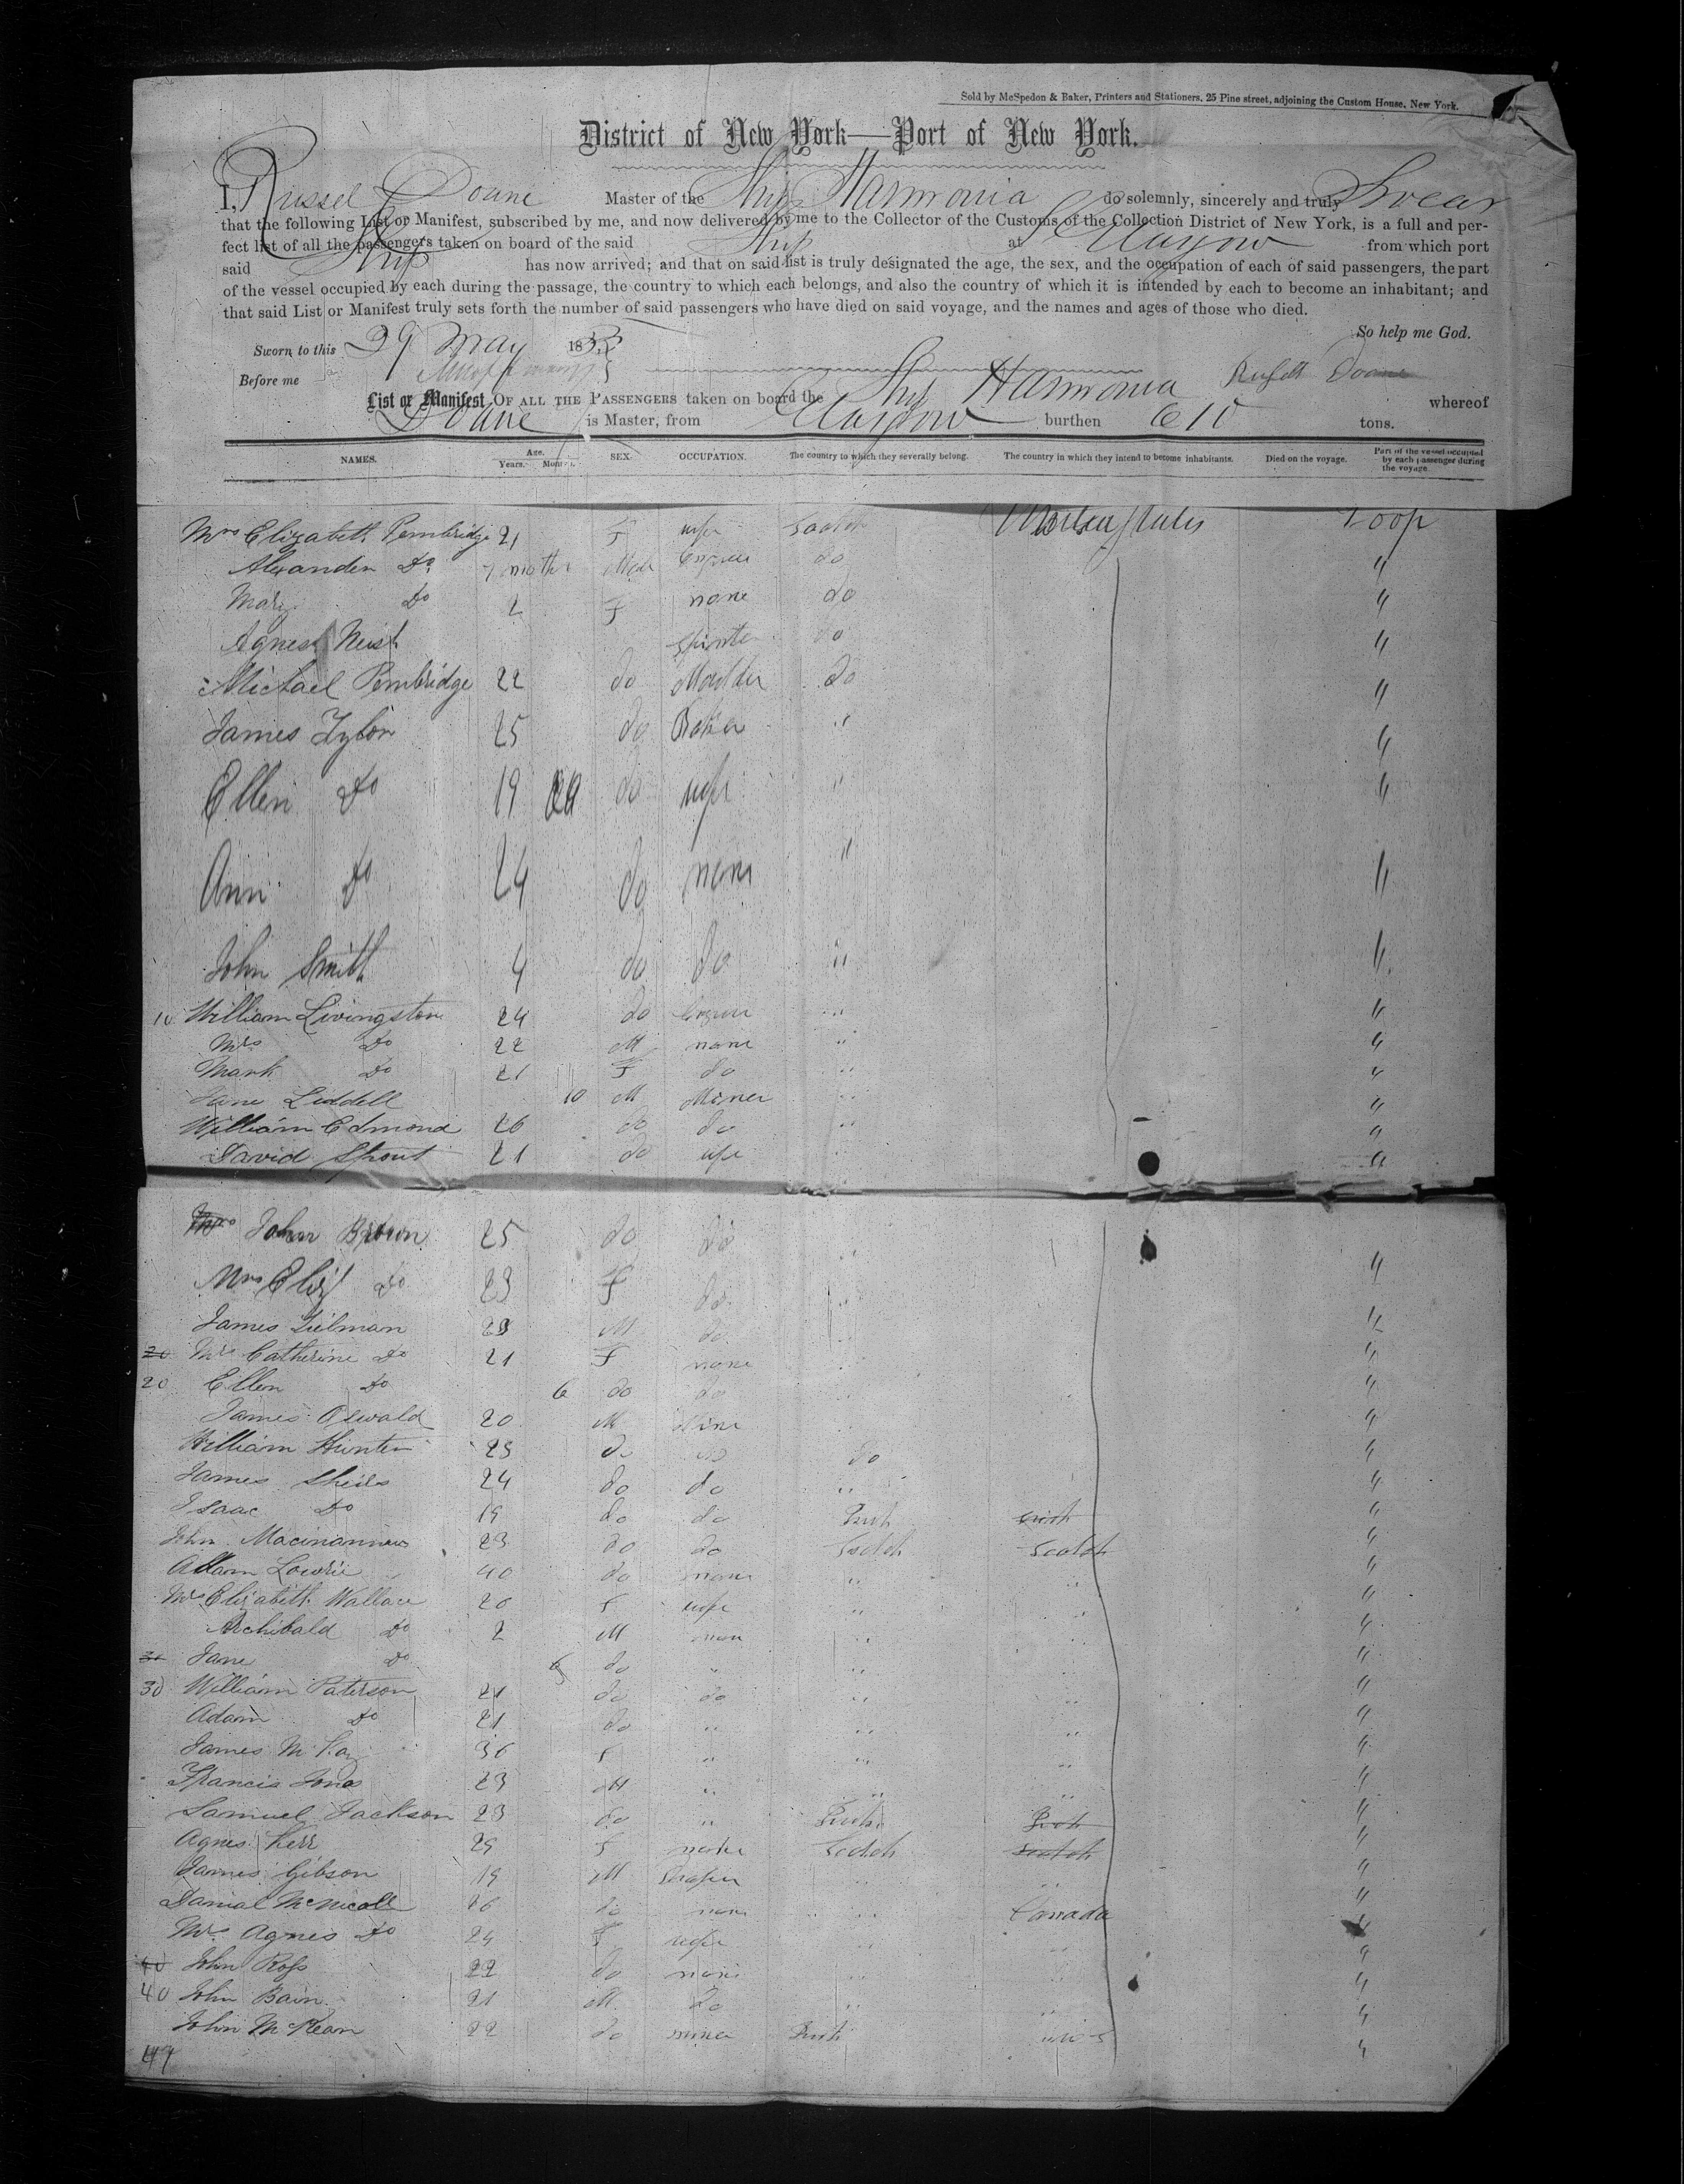 Sold by McSpedon & Baker, Printers and Stationers, 25 Pine street, adjoining the Custom House, New York.
District of New York—Port of New York.
I, Russel Doane Master of the Ship Harmonia do solemnly, sincerely and truly Swear
that the following List or Manifest, subscribed by me, and now delivered by me to the Collector of the Customs of the Collection District of New York, is a full and per-
fect list of all the passengers taken on board of the said Ship at Glasgow from which port
said Ship has now arrived; and that on said list is truly designated the age, the sex, and the occupation of each of said passengers, the part
of the vessel occupied by each during the passage, the country to which each belongs, and also the country of which it is intended by each to become an inhabitant; and
that said List or Manifest truly sets forth the number of said passengers who have died on said voyage, and the names and ages of those who died.
So help me God.
Sworn to this 29 May 185
Before me Russell Doane
List or Manifest OF ALL THE PASSENGERS taken on board the Ship Harmonia whereof
Doane is Master, from Glasgow burthen 610 tons.
NAMES. Age. Years. Months. SEX. OCCUPATION. The country to which they severally belong. The country in which they intend to become inhabitants. Died on the voyage. Part of the vessel occupied by each passenger during the voyage.
Mrs Elizabeth Pembridge 21 F wife Scotch States
Alexander Do 7 months Male do "
Mary Do 2 F none do "
Agnes do "
Michael Pembridge 22 do Moulder do "
James 25 do Baker " "
Ellen Do 19 do wife " "
Ann Do 24 do none " "
John Smith 4 do do " "
10 William Livingston 24 do " "
Mrs Do 22 M none " "
Mark Do 21 F do " "
Jane Liddell 10 M Miner " "
William Edmond 26 do do " "
David Sprout 21 do wife "
John Brown 25 do do "
Mrs Eliz Do 23 F do " "
James 23 M do "
20 Mrs Catherine Do 21 F none "
20 Ellen Do 6 do do "
James Oswald 20 M "
William Hunter 23 do do do "
James Sheils 24 do do " "
Isaac Do 19 do do Irish Irish "
John 23 do do Scotch Scotch "
Adam Lowrie 40 do none " " "
Mrs Elizabeth Wallace 20 F wife " " "
Archibald Do 2 M none " "
Jane Do do " " "
30 William Paterson 21 do do " " "
Adam Do 21 do " " " "
James McKay 36 F " " " "
Francis Jones 23 M " " " "
Samuel Jackson 23 do " Irish Irish "
Agnes Kerr 25 F none Scotch Scotch "
James Gibson 19 M Draper " " "
Danial McNicoll 26 do none " Canada "
Mrs Agnes Do 24 F wife " " "
40 John Ross 22 do none " "
40 John Bain 21 M do " " "
John McKean 22 do miner Irish "